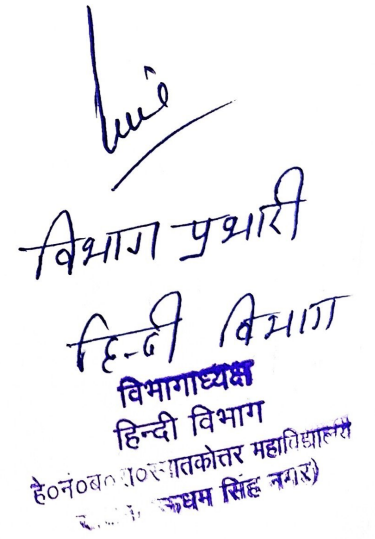 विभाग प्रभारी
हिन्दी विभाग
विभागाध्यक्ष
हिन्दी विभाग
हे०नं०ब० रा०स्नातकोत्तर महाविद्यालय
ऊधम सिंह नगर)